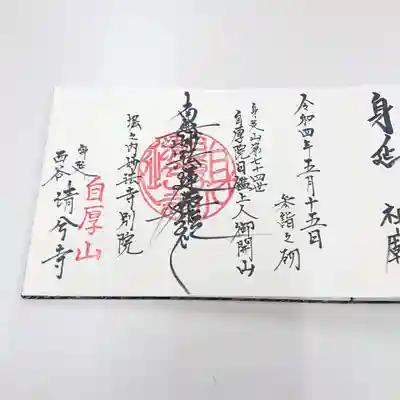 身延 祖廟
令和四年五月十五日
参詣之砌
身延山第七十四世
自厚院日鑑上人御開山
南無妙法蓮華経
堀之内妙法寺別院
身延
自厚山
西谷 清兮寺